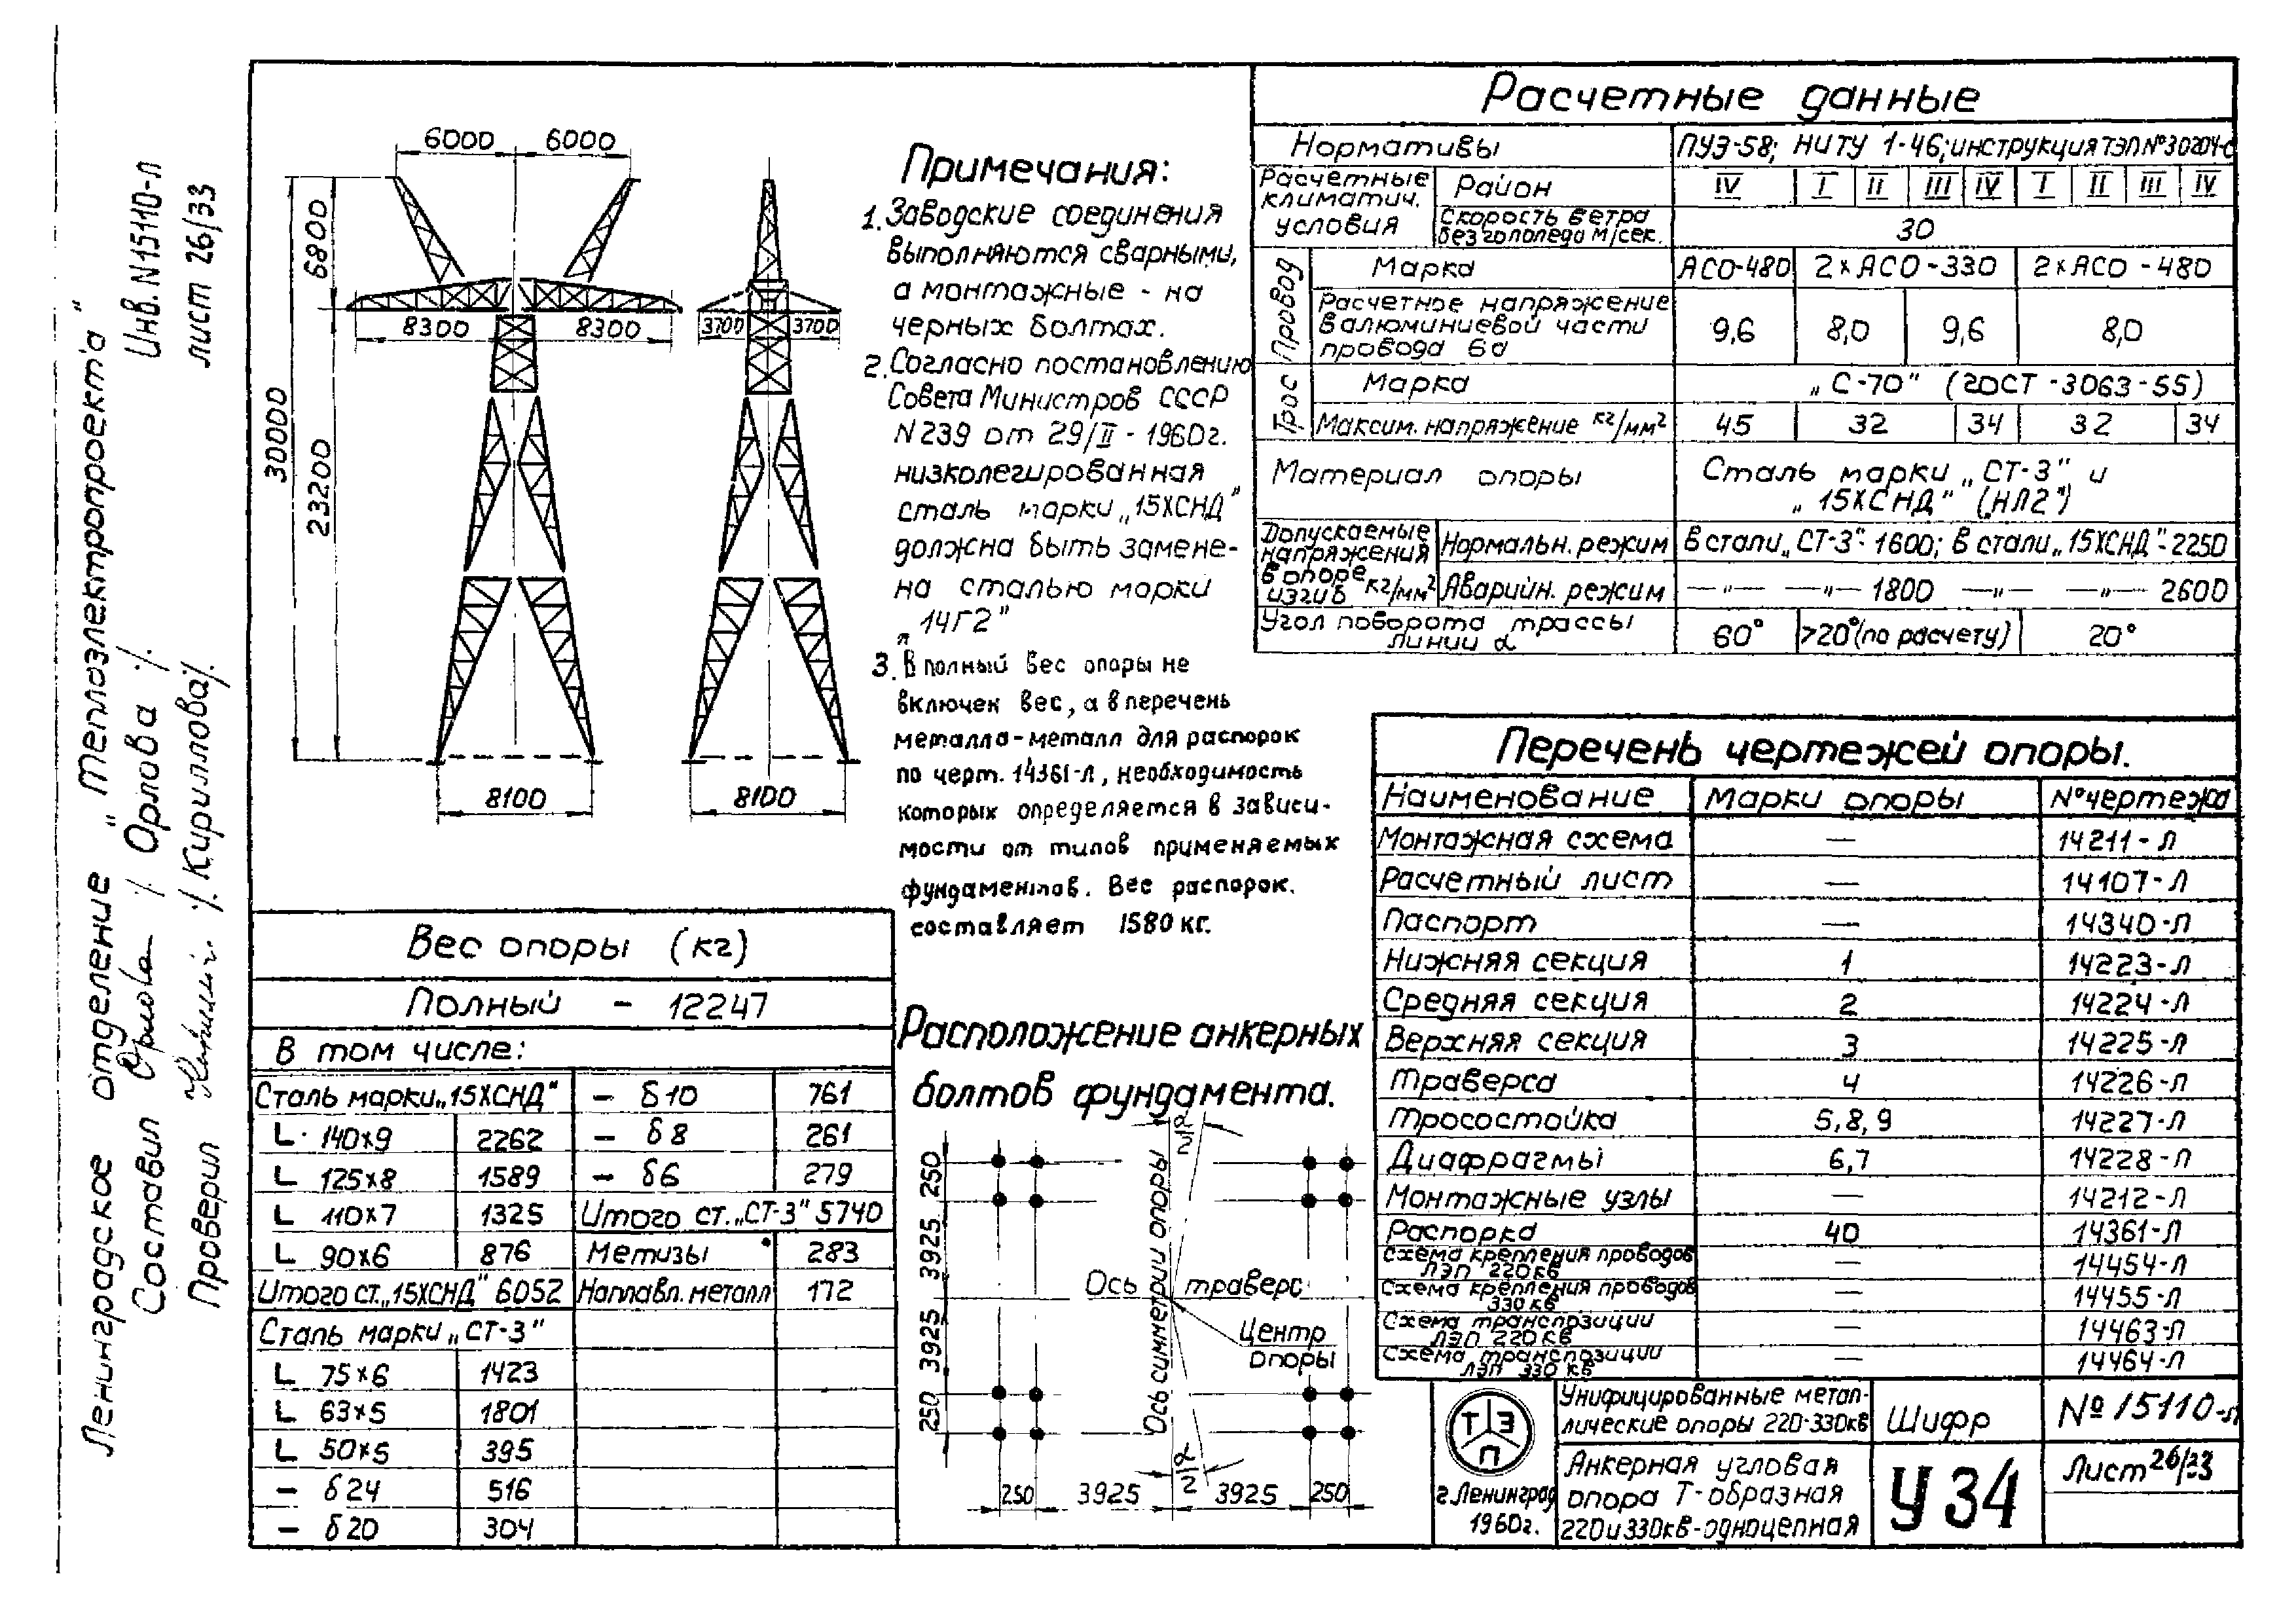 Ленинградское отделение „Теплоэлектропроекта“
Составил / Орлова /.
Проверил /. Кириллова/.
Инв. N15110-л
лист 26/33
6000 6000
6800
30000
23200
8300 8300
3700 3700
8100
8100
Примечания:
1. Заводские соединения
выполняются сварными,
а монтажные - на
черных болтах.
2. Согласно постановлению
Совета Министров СССР
N239 от 29/II - 1960г.
низколегированная
сталь марки „15ХСНД“
должна быть замене-
на сталью марки
„14Г2”
3. В полный вес опоры не
включен вес, а в перечень
металла-металл для распорок
по черт. 14361-л, необходимость
которых определяется в зависи-
мости от типов применяемых
фундаментов. Вес распорок.
составляет 1580 кг.
Расчетные данные
Нормативы ПУЭ-58; НИТУ 1-46; инструкция ТЭП №30204-с
Расчетные климатич. условия Район IV I II III IV I II III IV
Скорость ветра без гололеда м/сек. 30
Провод Марка АСО-480 2×АСО-330 2×АСО-480
Расчетное напряжение
в алюминиевой части
провода бd 9,6 8,0 9,6 8,0
Трос Марка „С-70” (ГОСТ-3063-55)
Максим. напряжение кг/мм² 45 32 34 32 34
Материал опоры Сталь марки „СТ-3” и
„15ХСНД” (НЛ2”)
Допускаемые напряжения в опоре изгиб кг/мм² Нормальн. режим В стали „СТ-3”- 1600; В стали „15ХСНД”- 2250
Аварийн. режим —„— —„— 1800 —„— —„— 2600
Угол поворота трассы
линии α 60° >20°(по расчету) 20°
Перечень чертежей опоры.
Наименование Марки опоры №чертежа
Монтажная схема — 14211-Л
Расчетный лист — 14107-Л
Паспорт — 14340-Л
Нижняя секция 1 14223-Л
Средняя секция 2 14224-Л
Верхняя секция 3 14225-Л
Траверса 4 14226-Л
Тросостойка 5,8,9 14227-Л
Диафрагмы 6,7 14228-Л
Монтажные узлы — 14212-Л
Распорка 40 14361-Л
Схема крепления проводов
ЛЭП 220кв — 14454-Л
Схема крепления проводов
330кв — 14455-Л
Схема транспозиции
ЛЭП 220кв — 14463-Л
Схема транспозиции
ЛЭП 330 кв — 14464-Л
Вес опоры (кг)
Полный - 12247
В том числе:
Сталь марки „15ХСНД“ — δ10 761
L 140×9 2262 — δ8 261
L 125×8 1589 — δ6 279
L 110×7 1325 Итого ст. „СТ-3” 5740
L 90×6 876 Метизы 283
Итого ст. „15ХСНД” 6052 Наплавл. металл 172
Сталь марки „СТ-3”
L 75×6 1423
L 63×5 1801
L 50×5 395
— δ24 516
— δ20 304
Расположение анкерных
болтов фундамента.
α/2
250
3925
3925
250
Ось симметрии опоры
Ось траверс
Центр
опоры
α/2
250 3925 3925 250
ТЭП
г. Ленинград
1960г.
Унифицированные метал-
лические опоры 220-330кв
Анкерная угловая
опора Т-образная
220 и 330кв-одноцепная
Шифр
У34
№ 15110-л
Лист 26/33